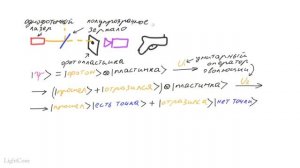 однофотонный лазер
полупрозрачное зеркало
фотопластинка
|Ψ> = |фотон> ⊗ |пластинка> U₁ унитарный оператор эволюции
→ (|прошел> + |отразился>) ⊗ |пластинка> U₂
→ |прошел>|есть точка> + |отразился>|нет точки>
LightCone